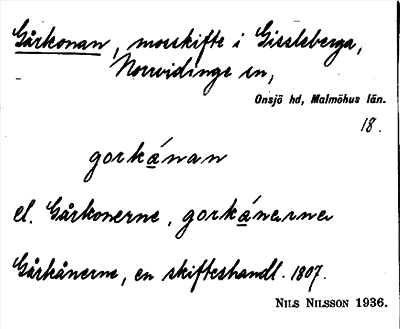 Gårkonan, mosskifte i Gissleberga,
Norrvidinge sn,
Onsjö hd, Malmöhus län.
18.
gorkánan
el. Gårkonerne, gorkánerner
Gårkånerne, en skifteshandl. 1807.
NILS NILSSON 1936.